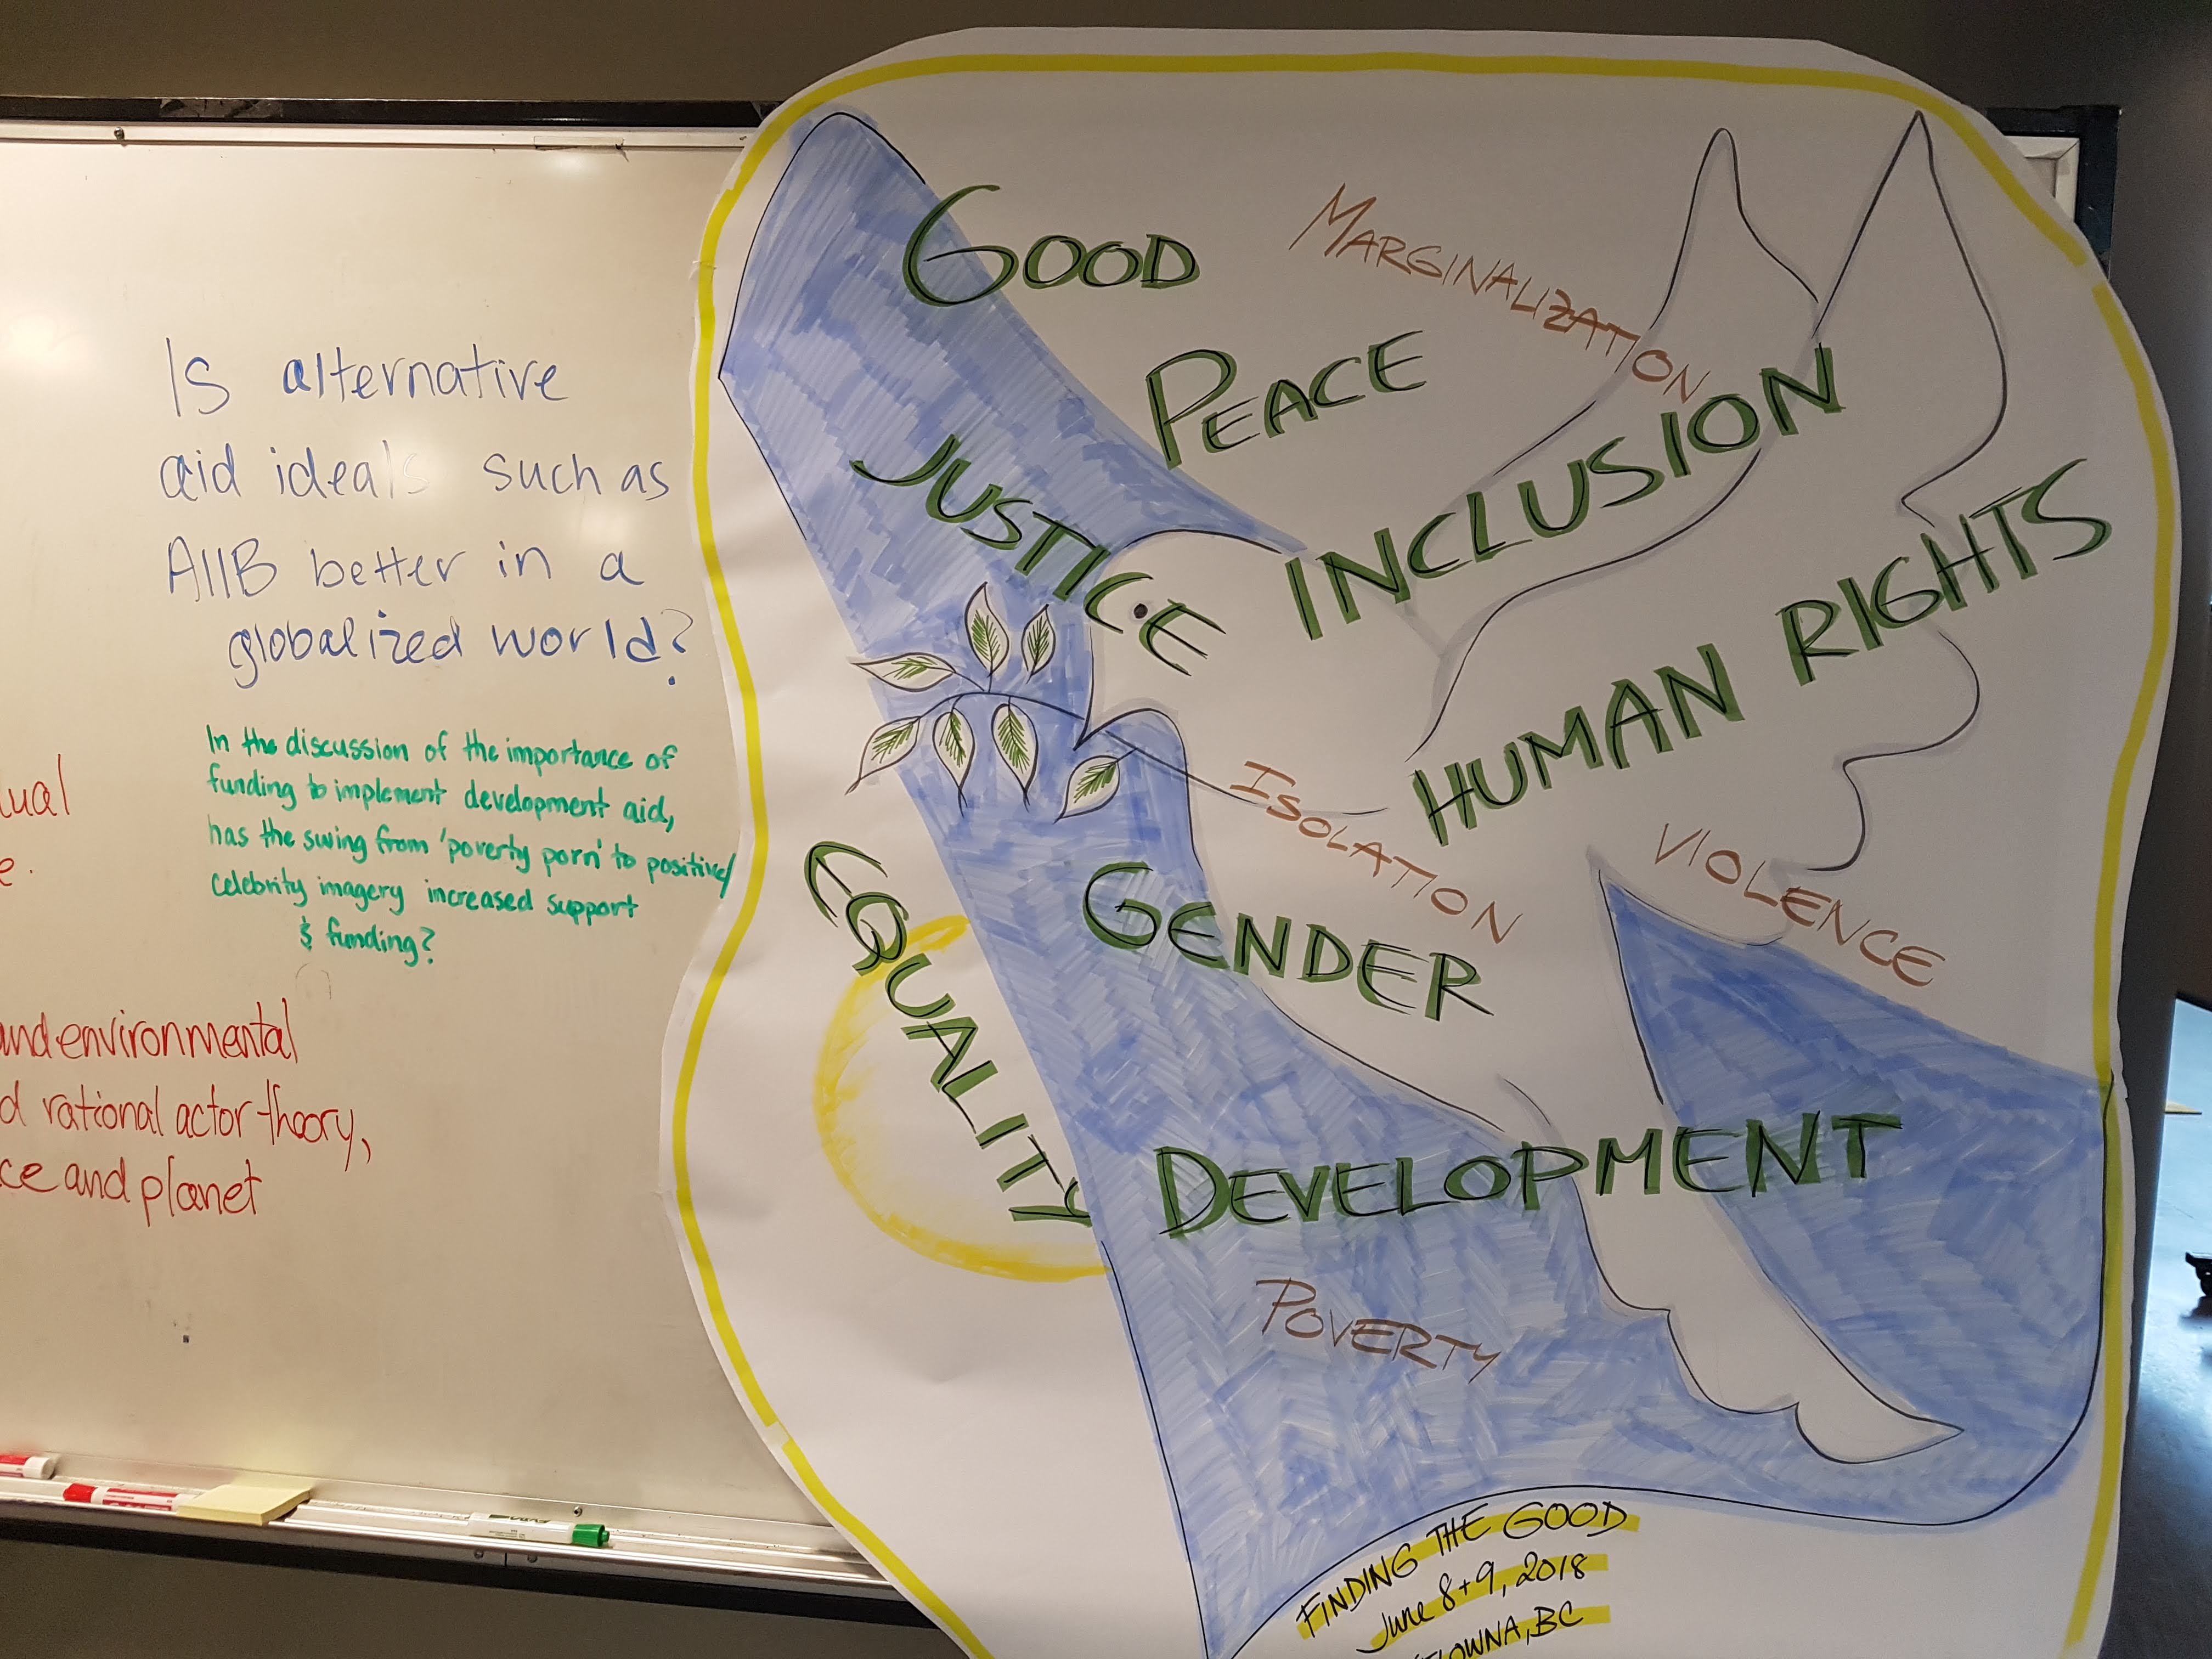 Is alternative
aid ideals such as
AIIB better in a
globalized world?
In the discussion of the importance of
funding to implement development aid,
has the swing from 'poverty porn' to positive/
celebrity imagery increased support
& funding?
ual
e.
and environmental
d rational actor theory,
ce and planet
GOOD
MARGINALIZATION
PEACE
JUSTICE
INCLUSION
HUMAN RIGHTS
ISOLATION
VIOLENCE
EQUALITY
GENDER
DEVELOPMENT
POVERTY
FINDING THE GOOD
June 8+9, 2018
ELOWNA, BC